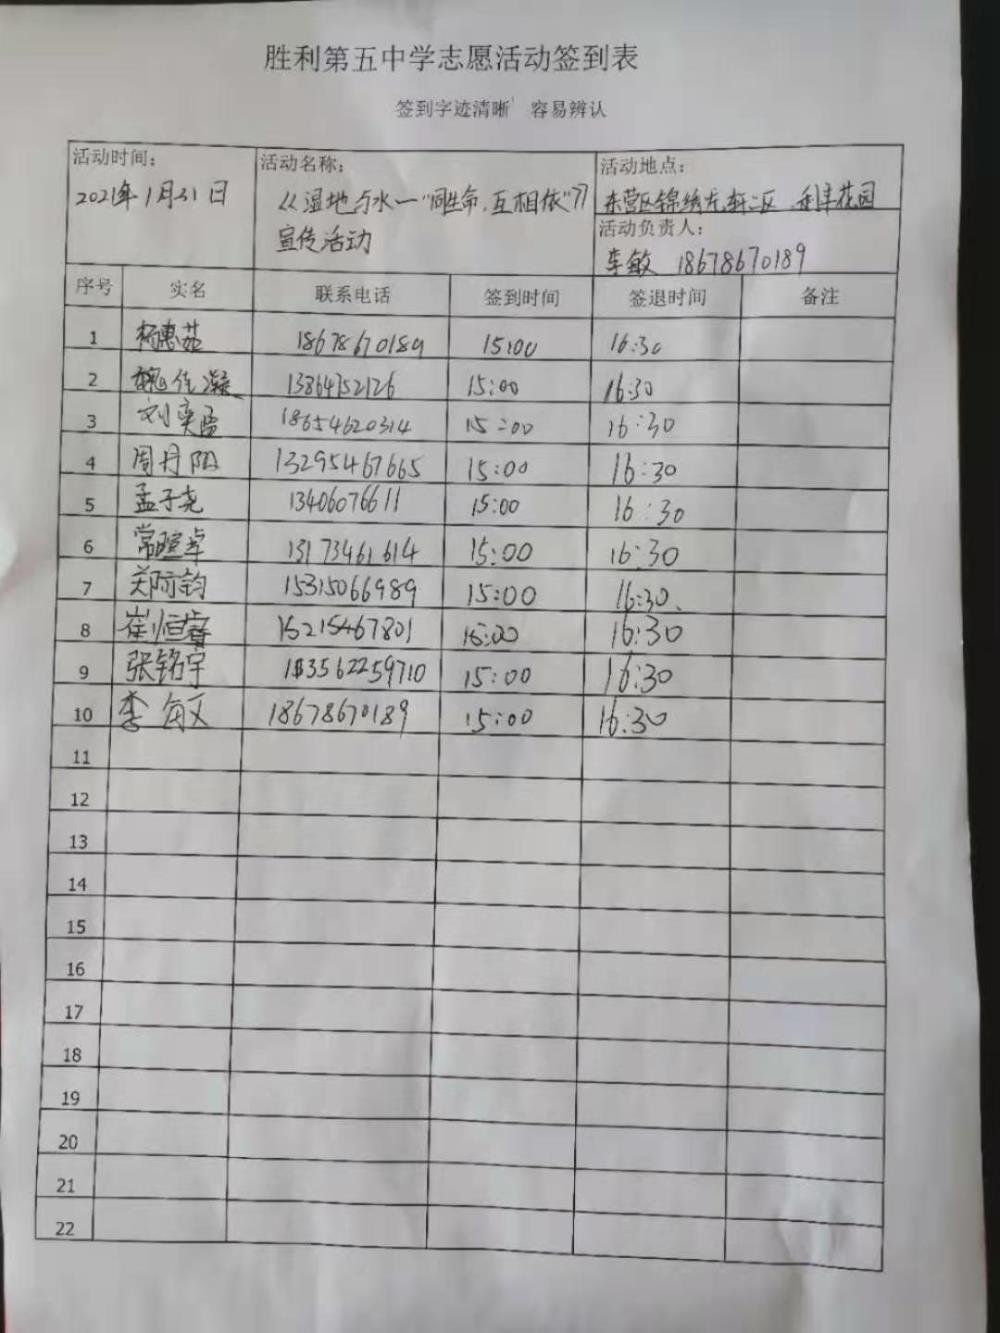 胜利第五中学志愿活动签到表
签到字迹清晰 容易辨认
活动时间：
2021年1月31日
活动名称：
《湿地与水一"同生命,互相依"》
宣传活动
活动地点：
东营区锦绣龙轩二区、利丰花园
活动负责人：
李敏 18678670189
序号 实名 联系电话 签到时间 签退时间 备注
1 杨惠茹 18678670189 15:00 16:30
2 魏佳凝 13864752126 15:00 16:30
3 刘奕 18654620314 15:00 16:30
4 周丹阳 13295467665 15:00 16:30
5 孟子尧 13406076611 15:00 16:30
6 常暄卓 13173461614 15:00 16:30
7 郑阿钧 15315066989 15:00 16:30
8 崔恒睿 15215467801 15:00 16:30
9 张铭宇 13562259710 15:00 16:30
10 李敏 18678670189 15:00 16:30
11
12
13
14
15
16
17
18
19
20
21
22